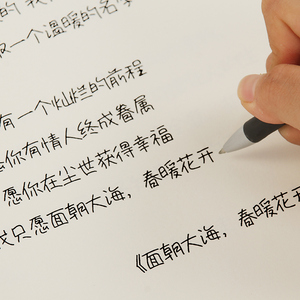 取一个温暖的名字
有一个灿烂的前程
愿你有情人终成眷属
愿你在尘世获得幸福
我只愿面朝大海，春暖花开
《面朝大海，春暖花开